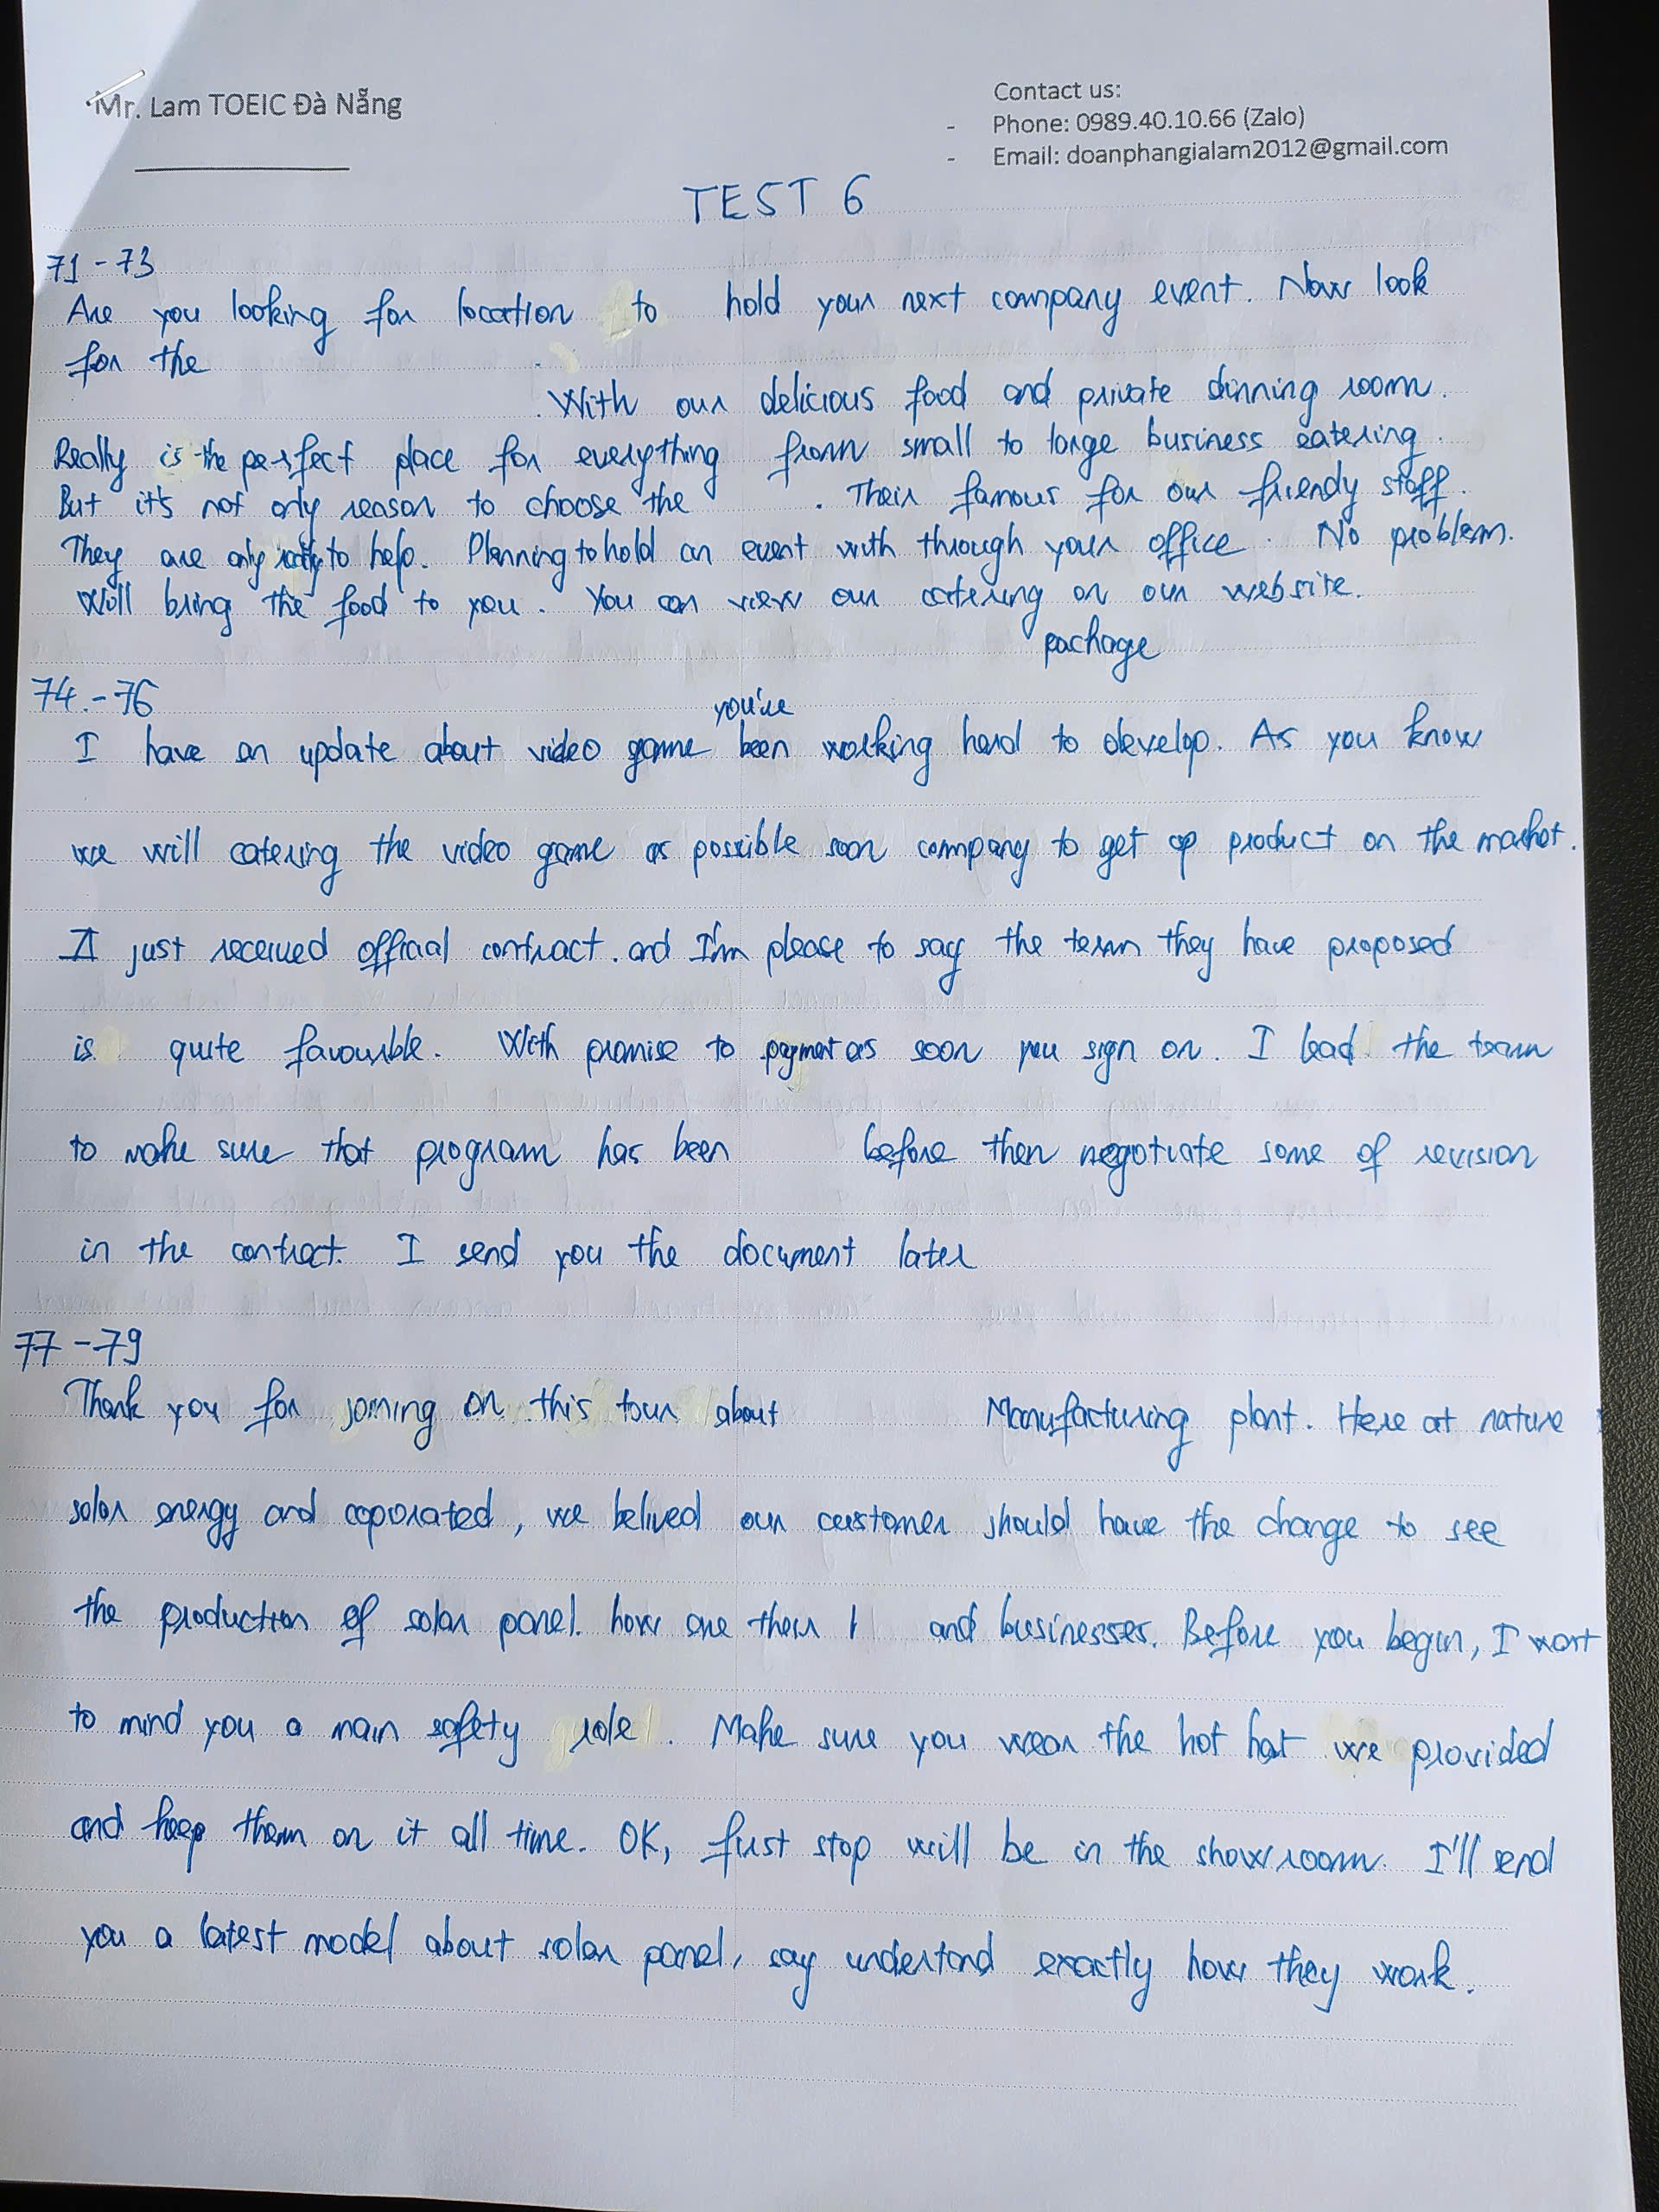 Mr. Lam TOEIC Đà Nẵng
Contact us:
- Phone: 0989.40.10.66 (Zalo)
- Email: doanphangialam2012@gmail.com
TEST 6
71 - 73
Are you looking for location to hold your next company event. Now look
for the
. With our delicious food and private dinning room.
Really is the perfect place for everything from small to large business eatering.
But it's not only reason to choose the . Their famous for our friendy staff.
They are only to help. Planning to hold an event with through your office. No problem.
Will bring the food to you. You can view our catering on our website.
package
74. - 76
you've
I have an update about video game been working hard to develop. As you know
we will catering the video game as possible soon company to get op product on the market.
I just received official contract. and I'm please to say the term they have proposed
is quite favourble. With promise to payment as soon you sign on. I lead the team
to make sure that program has been before then negotiate some of revision
in the contract. I send you the document later
77 - 79
Thank you for joining on this tour about Manufacturing plant. Here at nature
solar energy and coporated, we belived our customer should have the change to see
the production of solar panel. how are their l and businesses. Before you begin, I want
to mind you a main safety role. Make sure you wear the hot hat we provided
and keep them on it all time. OK, first stop will be in the showroom. I'll send
you a latest model about solar panel, say understand exactly how they work.